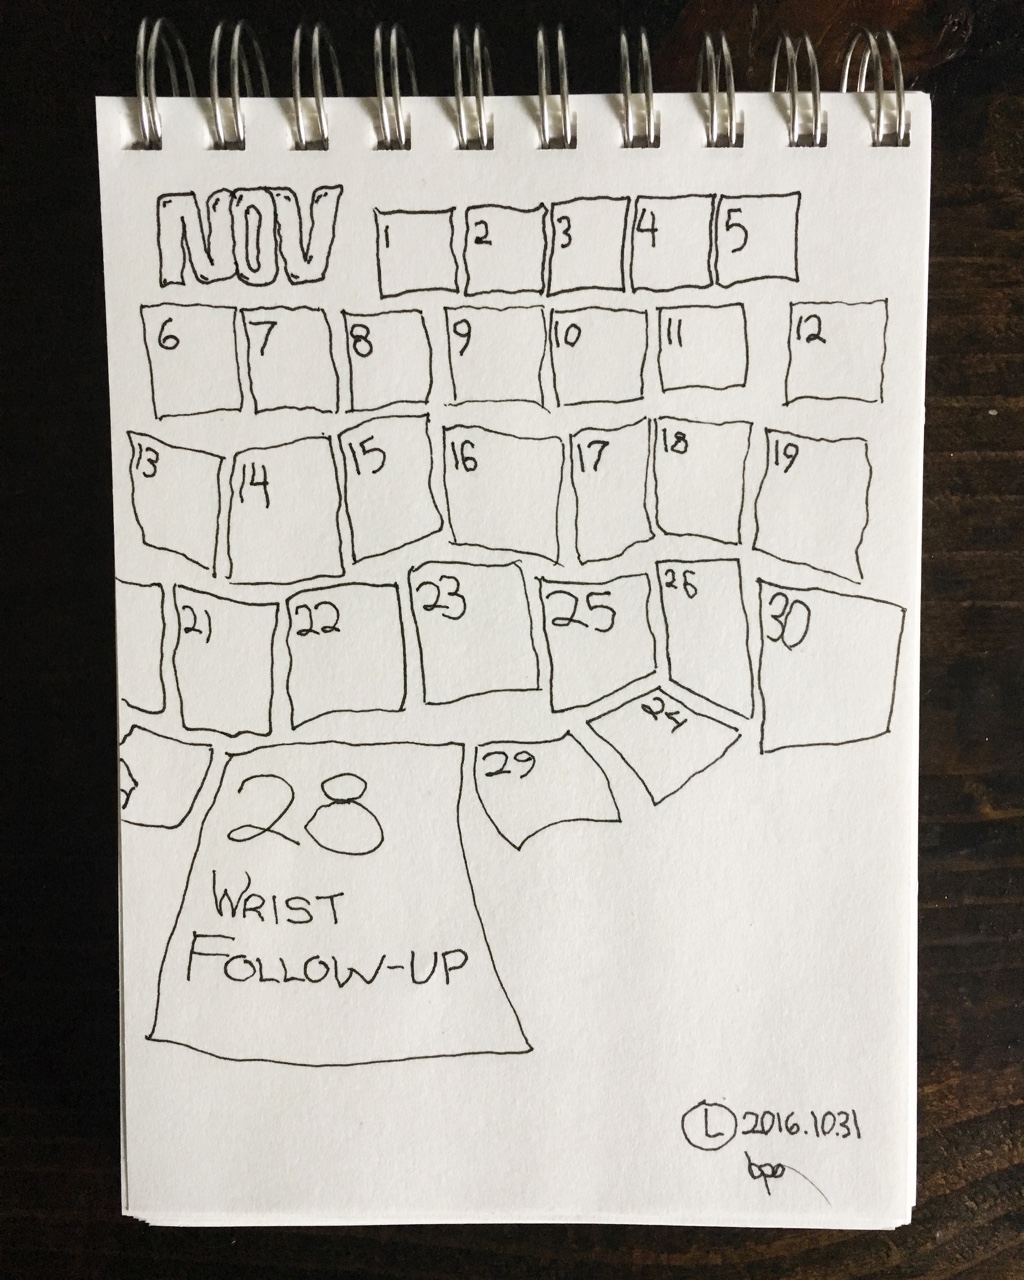 NOV 1 2 3 4 5
6 7 8 9 10 11 12
13 14 15 16 17 18 19
21 22 23 25 26 30
28 29 24
WRIST
FOLLOW-UP
L 2016.10.31
bpo